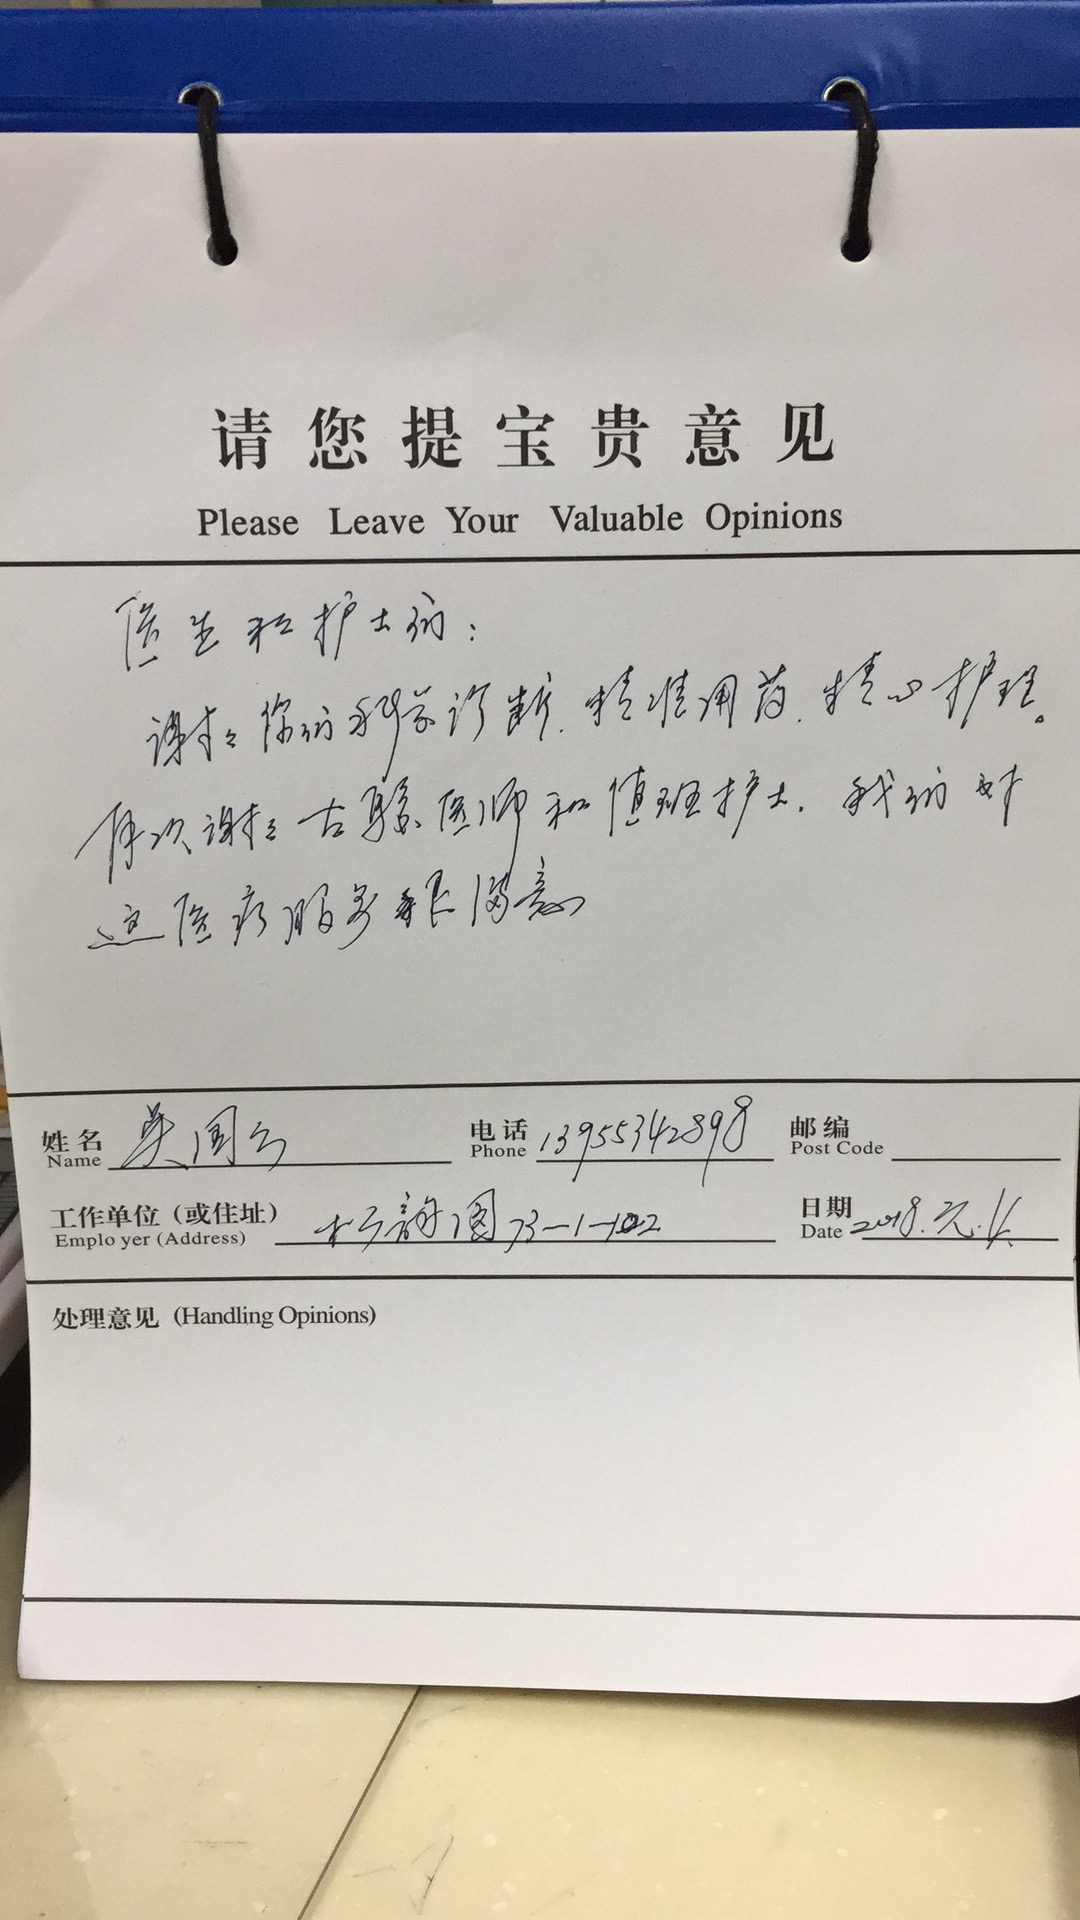 请您提宝贵意见
Please Leave Your Valuable Opinions
医生和护士们:
谢谢你们科学诊断.精准用药.精心护理。
再次谢谢古医师和值班护士.我们对
这医疗服务很满意
姓名 吴国云 电话 13955342898 邮编
Name Phone Post Code
工作单位（或住址） 园73-1-102 日期 2018.元.
Emplo yer (Address) Date
处理意见 (Handling Opinions)